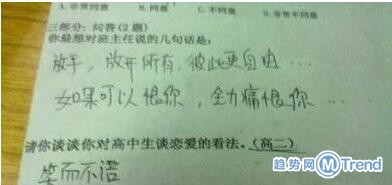 A. 非常同意 B. 同意 C. 不同意 D. 非常不同意
三部分: 问答(2题)
你最想对班主任说的几句话是:
放手, 放开所有, 彼此更自由...
如果可以恨你, 全力痛恨你...
请你谈谈你对高中生谈恋爱的看法。(高二)
笑而不语
趋势网 M Trend